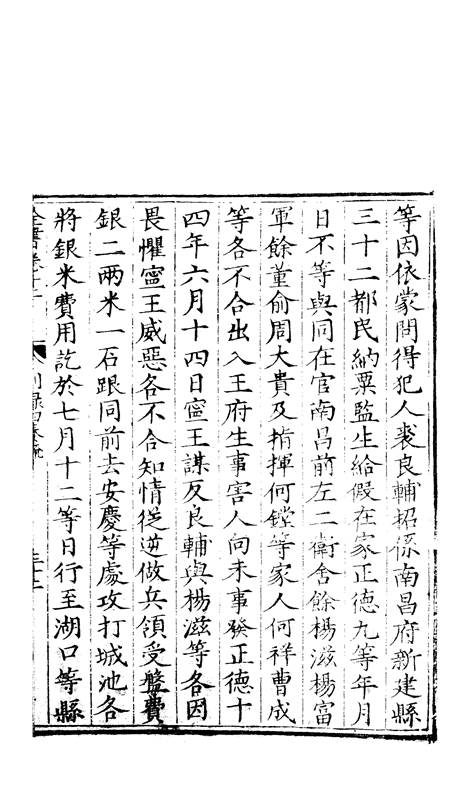 等因依蒙問得犯人裘良輔招係南昌府新建縣
三十二都民納粟監生給假在家正德九等年月
日不等與同在官南昌前左二衛舍餘楊滋楊富
軍餘董俞周大貴及指揮何鏜等家人何祥曹成
等各不合出入王府生事害人向未事發正德十
四年六月十四日寧王謀反良輔與楊滋等各因
畏懼寧王威惡各不合知情從逆做兵領受盤費
銀二兩米一石跟同前去安慶等處攻打城池各
將銀米費用訖於七月十二等日行至湖口等縣